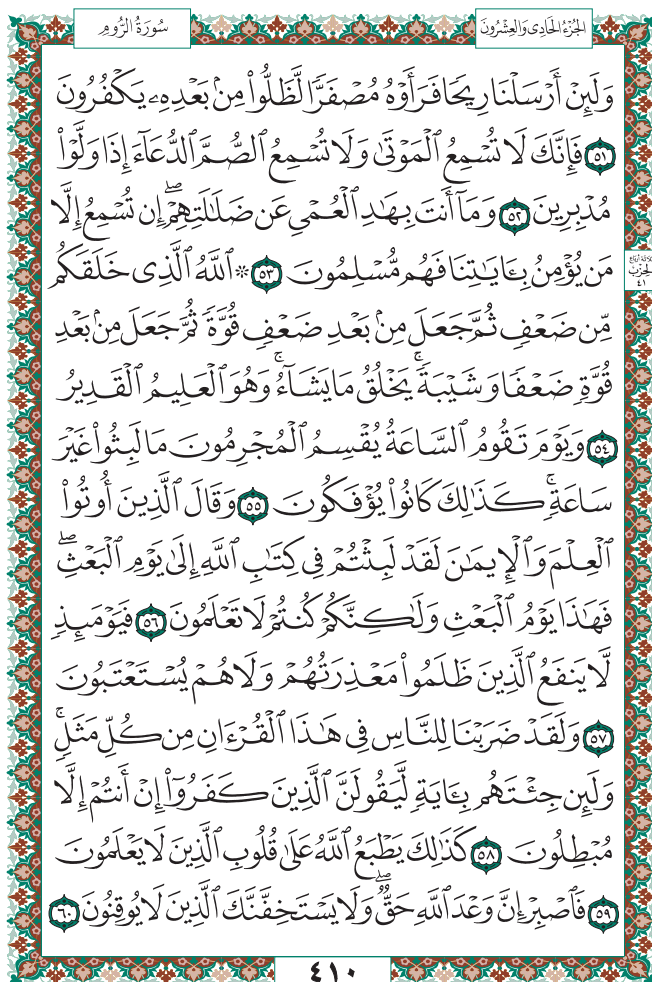 الجُزْءُ الحَادِي وَالعِشْرُونَ
سُورَةُ الرُّومِ
وَلَئِنْ أَرْسَلْنَا رِيحًا فَرَأَوْهُ مُصْفَرًّا لَّظَلُّوا۟ مِنۢ بَعْدِهِۦ يَكْفُرُونَ
٥١ فَإِنَّكَ لَا تُسْمِعُ ٱلْمَوْتَىٰ وَلَا تُسْمِعُ ٱلصُّمَّ ٱلدُّعَآءَ إِذَا وَلَّوْا۟
مُدْبِرِينَ ٥٢ وَمَآ أَنتَ بِهَٰدِ ٱلْعُمْىِ عَن ضَلَٰلَتِهِمْ ۖ إِن تُسْمِعُ إِلَّا
مَن يُؤْمِنُ بِـَٔايَٰتِنَا فَهُم مُّسْلِمُونَ ٥٣ ۞ ٱللَّهُ ٱلَّذِى خَلَقَكُم
ثلاثة أرباع الحِزْب ٤١
مِّن ضَعْفٍ ثُمَّ جَعَلَ مِنۢ بَعْدِ ضَعْفٍ قُوَّةً ثُمَّ جَعَلَ مِنۢ بَعْدِ
قُوَّةٍ ضَعْفًا وَشَيْبَةً ۚ يَخْلُقُ مَا يَشَآءُ ۚ وَهُوَ ٱلْعَلِيمُ ٱلْقَدِيرُ
٥٤ وَيَوْمَ تَقُومُ ٱلسَّاعَةُ يُقْسِمُ ٱلْمُجْرِمُونَ مَا لَبِثُوا۟ غَيْرَ
سَاعَةٍ ۚ كَذَٰلِكَ كَانُوا۟ يُؤْفَكُونَ ٥٥ وَقَالَ ٱلَّذِينَ أُوتُوا۟
ٱلْعِلْمَ وَٱلْإِيمَٰنَ لَقَدْ لَبِثْتُمْ فِى كِتَٰبِ ٱللَّهِ إِلَىٰ يَوْمِ ٱلْبَعْثِ ۖ
فَهَٰذَا يَوْمُ ٱلْبَعْثِ وَلَٰكِنَّكُمْ كُنتُمْ لَا تَعْلَمُونَ ٥٦ فَيَوْمَئِذٍ
لَّا يَنفَعُ ٱلَّذِينَ ظَلَمُوا۟ مَعْذِرَتُهُمْ وَلَا هُمْ يُسْتَعْتَبُونَ
٥٧ وَلَقَدْ ضَرَبْنَا لِلنَّاسِ فِى هَٰذَا ٱلْقُرْءَانِ مِن كُلِّ مَثَلٍ ۚ
وَلَئِن جِئْتَهُم بِـَٔايَةٍ لَّيَقُولَنَّ ٱلَّذِينَ كَفَرُوٓا۟ إِنْ أَنتُمْ إِلَّا
مُبْطِلُونَ ٥٨ كَذَٰلِكَ يَطْبَعُ ٱللَّهُ عَلَىٰ قُلُوبِ ٱلَّذِينَ لَا يَعْلَمُونَ
٥٩ فَٱصْبِرْ إِنَّ وَعْدَ ٱللَّهِ حَقٌّ ۖ وَلَا يَسْتَخِفَّنَّكَ ٱلَّذِينَ لَا يُوقِنُونَ ٦٠
٤١٠